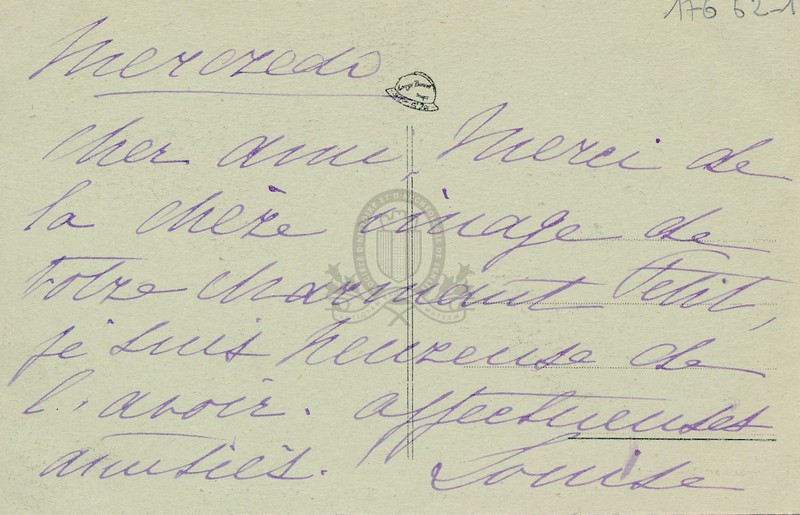 176 62-1
Mercredi
Cher ami, Merci de
la chère image de
votre charmant Petit,
je suis heureuse de
l'avoir. affectueuses
amitiés. Louise